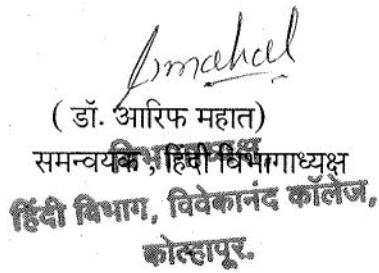 ( डॉ. आरिफ महात)
समन्वयक , हिंदी विभागाध्यक्ष
विभागाध्यक्ष
हिंदी विभाग, विवेकानंद कॉलेज,
कोल्हापूर.